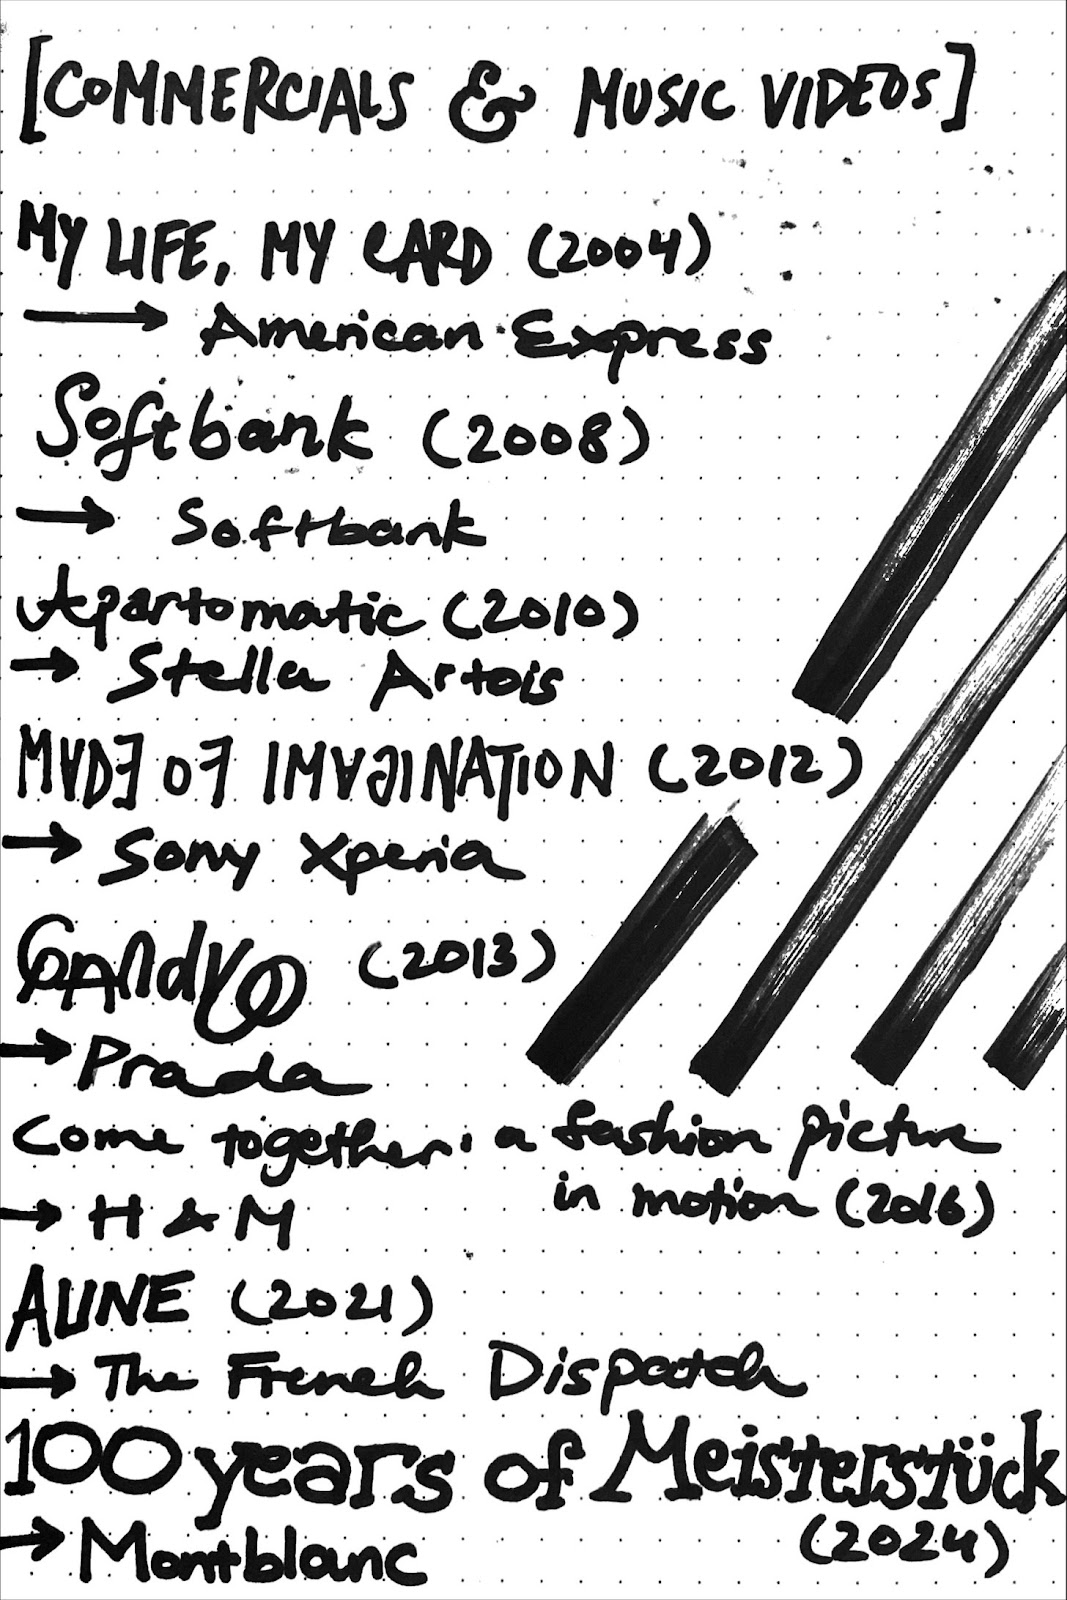 [COMMERCIALS & MUSIC VIDEOS]
MY LIFE, MY CARD (2004)
→ American Express
Softbank (2008)
→ Softbank
Apartomatic (2010)
→ Stella Artois
MADE OF IMAGINATION (2012)
→ Sony Xperia
CANdYO (2013)
→ Prada
Come together: a fashion picture
in motion (2016)
→ H & M
ALINE (2021)
→ The French Dispatch
100 years of Meisterstück
(2024)
→ Montblanc